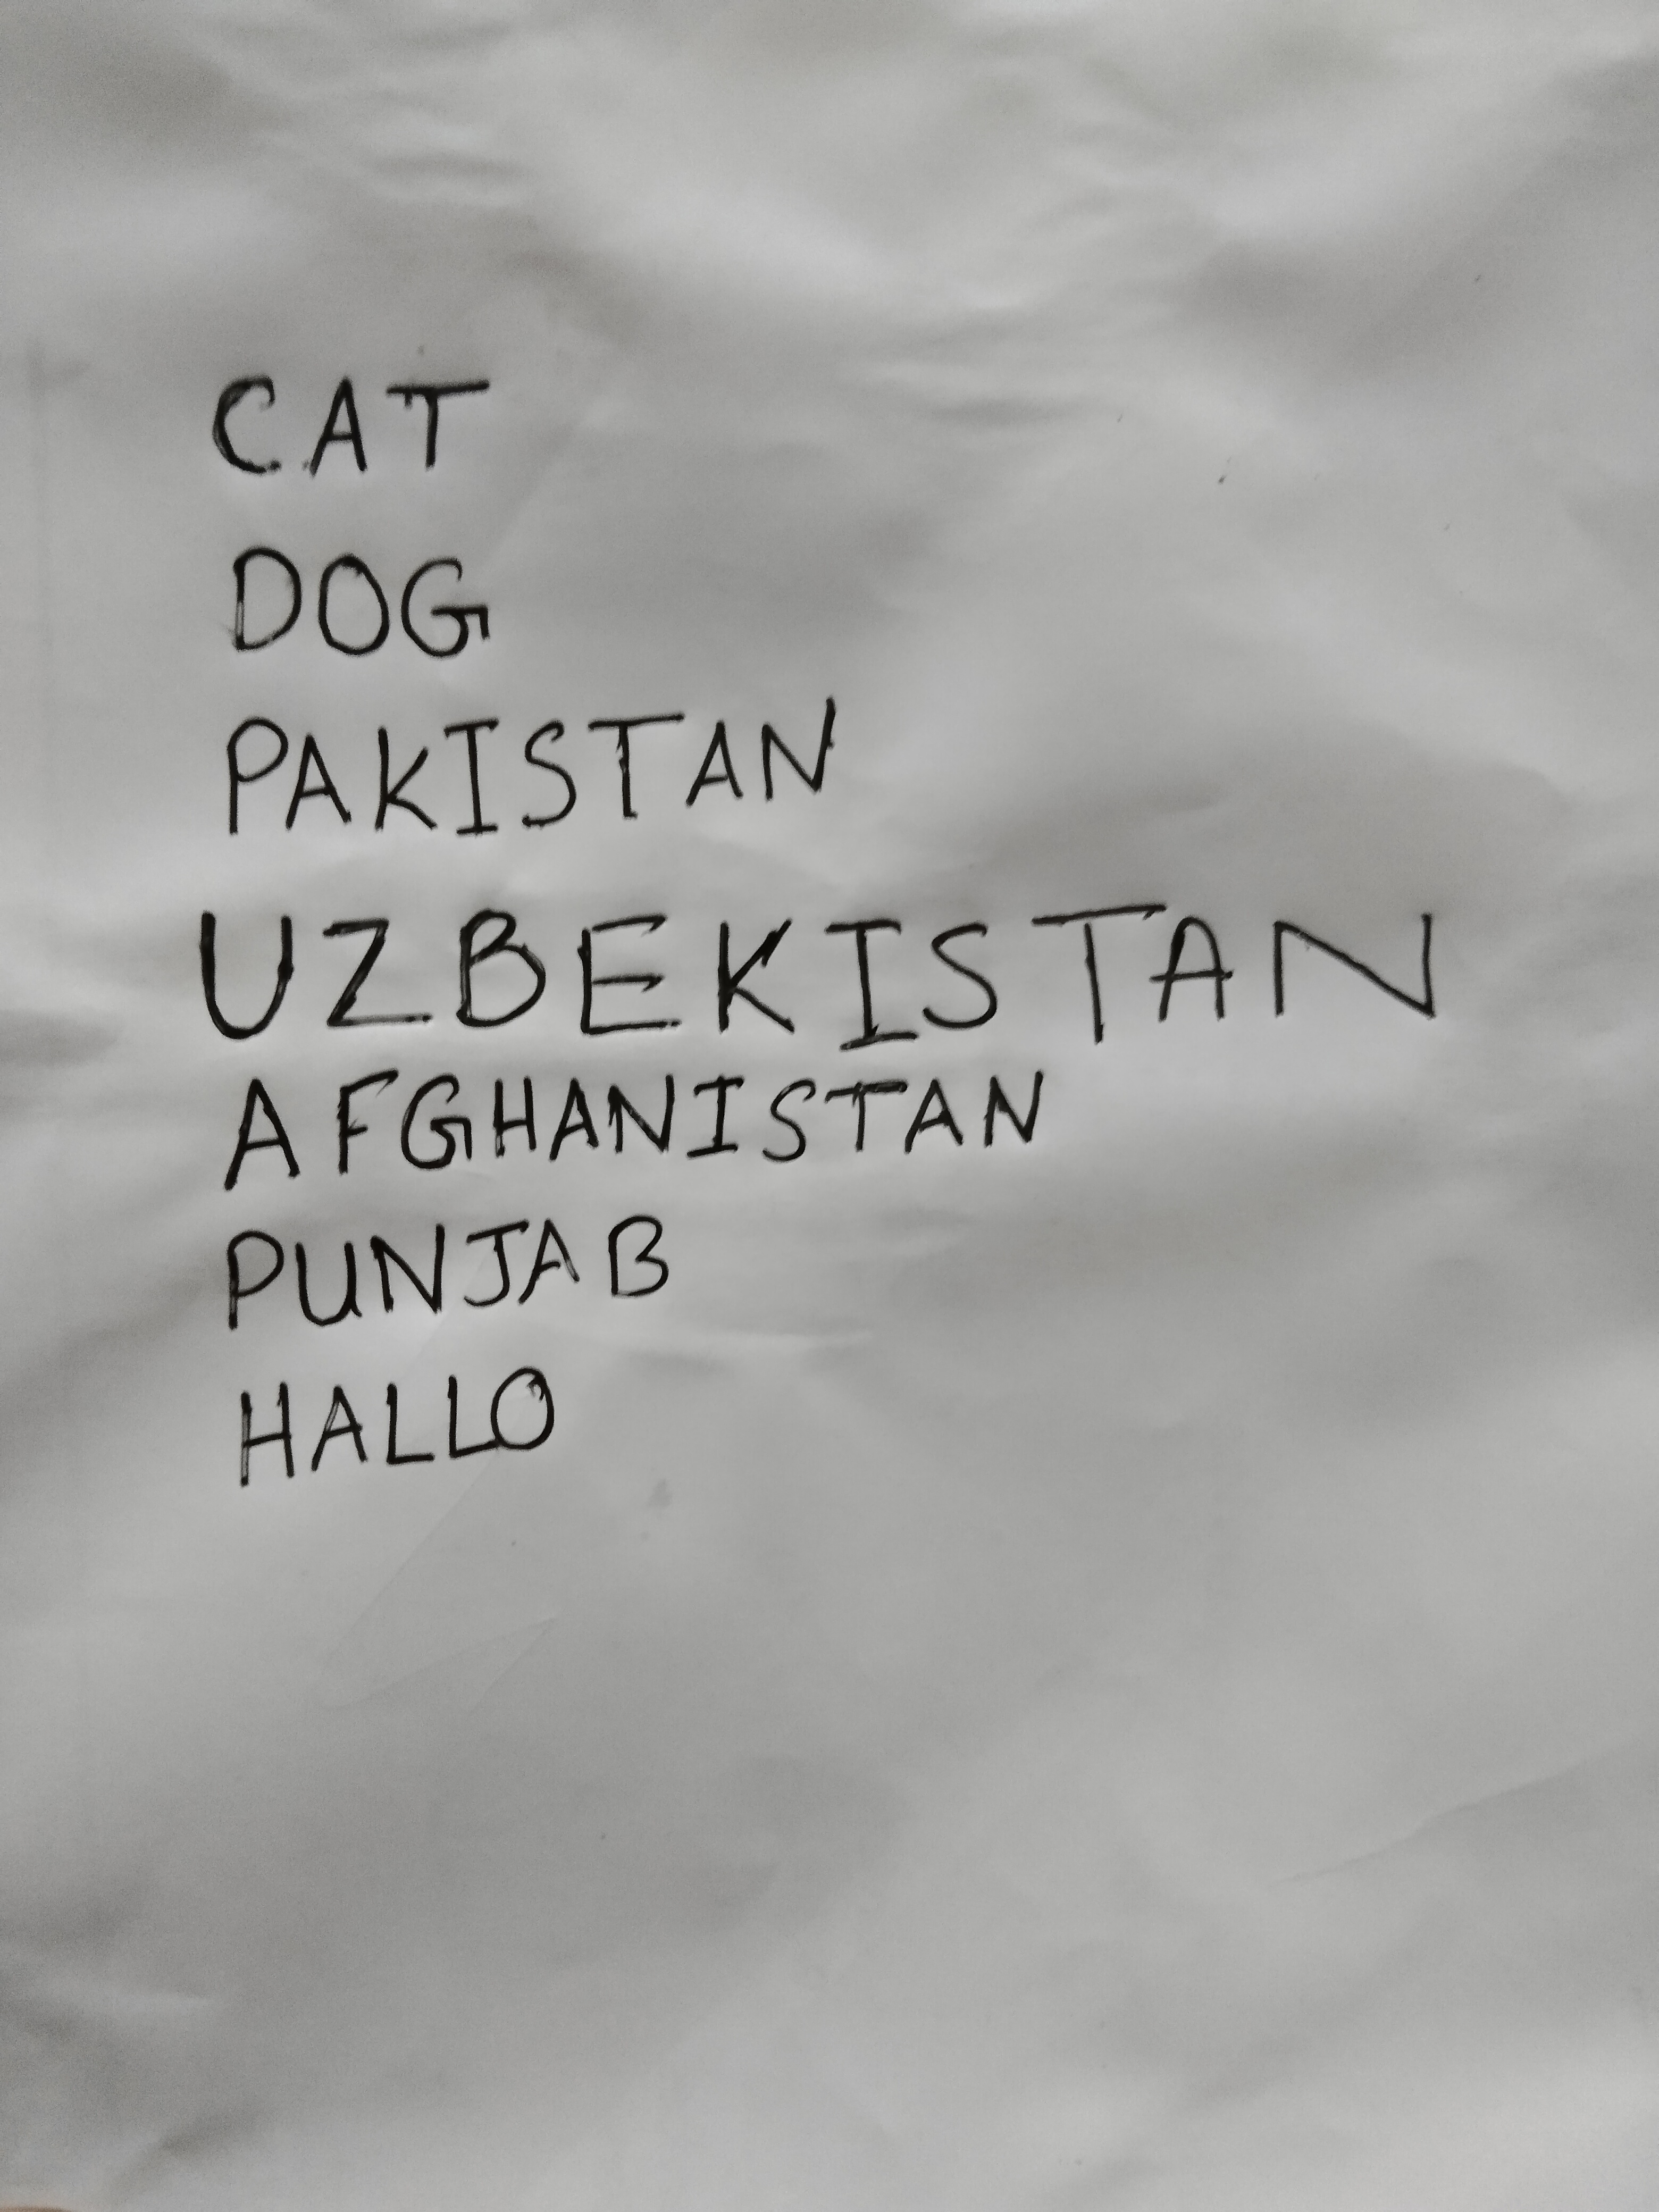 CAT
DOG
PAKISTAN
UZBEKISTAN
AFGHANISTAN
PUNJAB
HALLO